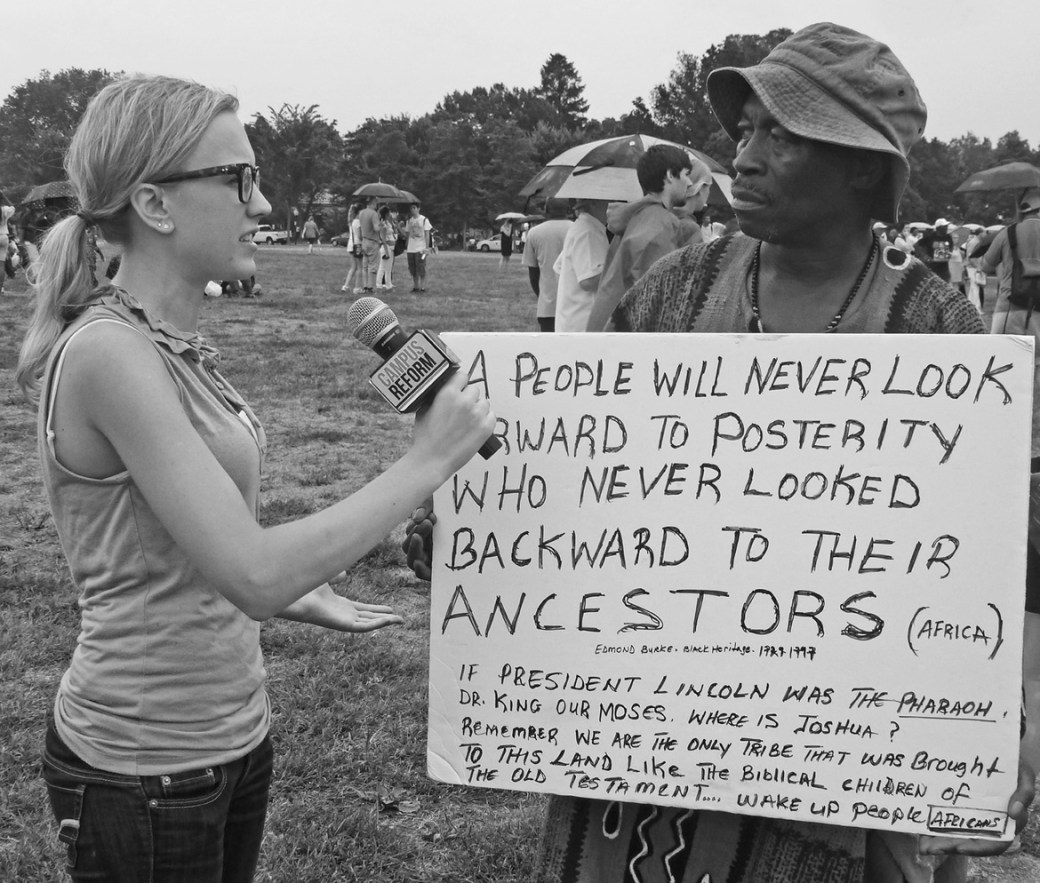 CAMPUS
REFORM
A PEOPLE WILL NEVER LOOK
RWARD TO POSTERITY
WHO NEVER LOOKED
BACKWARD TO THEIR
ANCESTORS (AFRICA)
EDMOND BURKE. BlACK HeRitage.
IF PRESIDENT LINCOLN WAS THE PHARAOH.
DR. KING OUR MOSES. WHERE IS JOSHUA?
REMEMBER WE ARE THE ONLY TRIBE THAT WAS BROught
TO THIS LAND LIKE THE BIBLICAL CHILDREN OF
THE OLD TESTAMENT.... WAKE UP PEOPLE AFRICANS